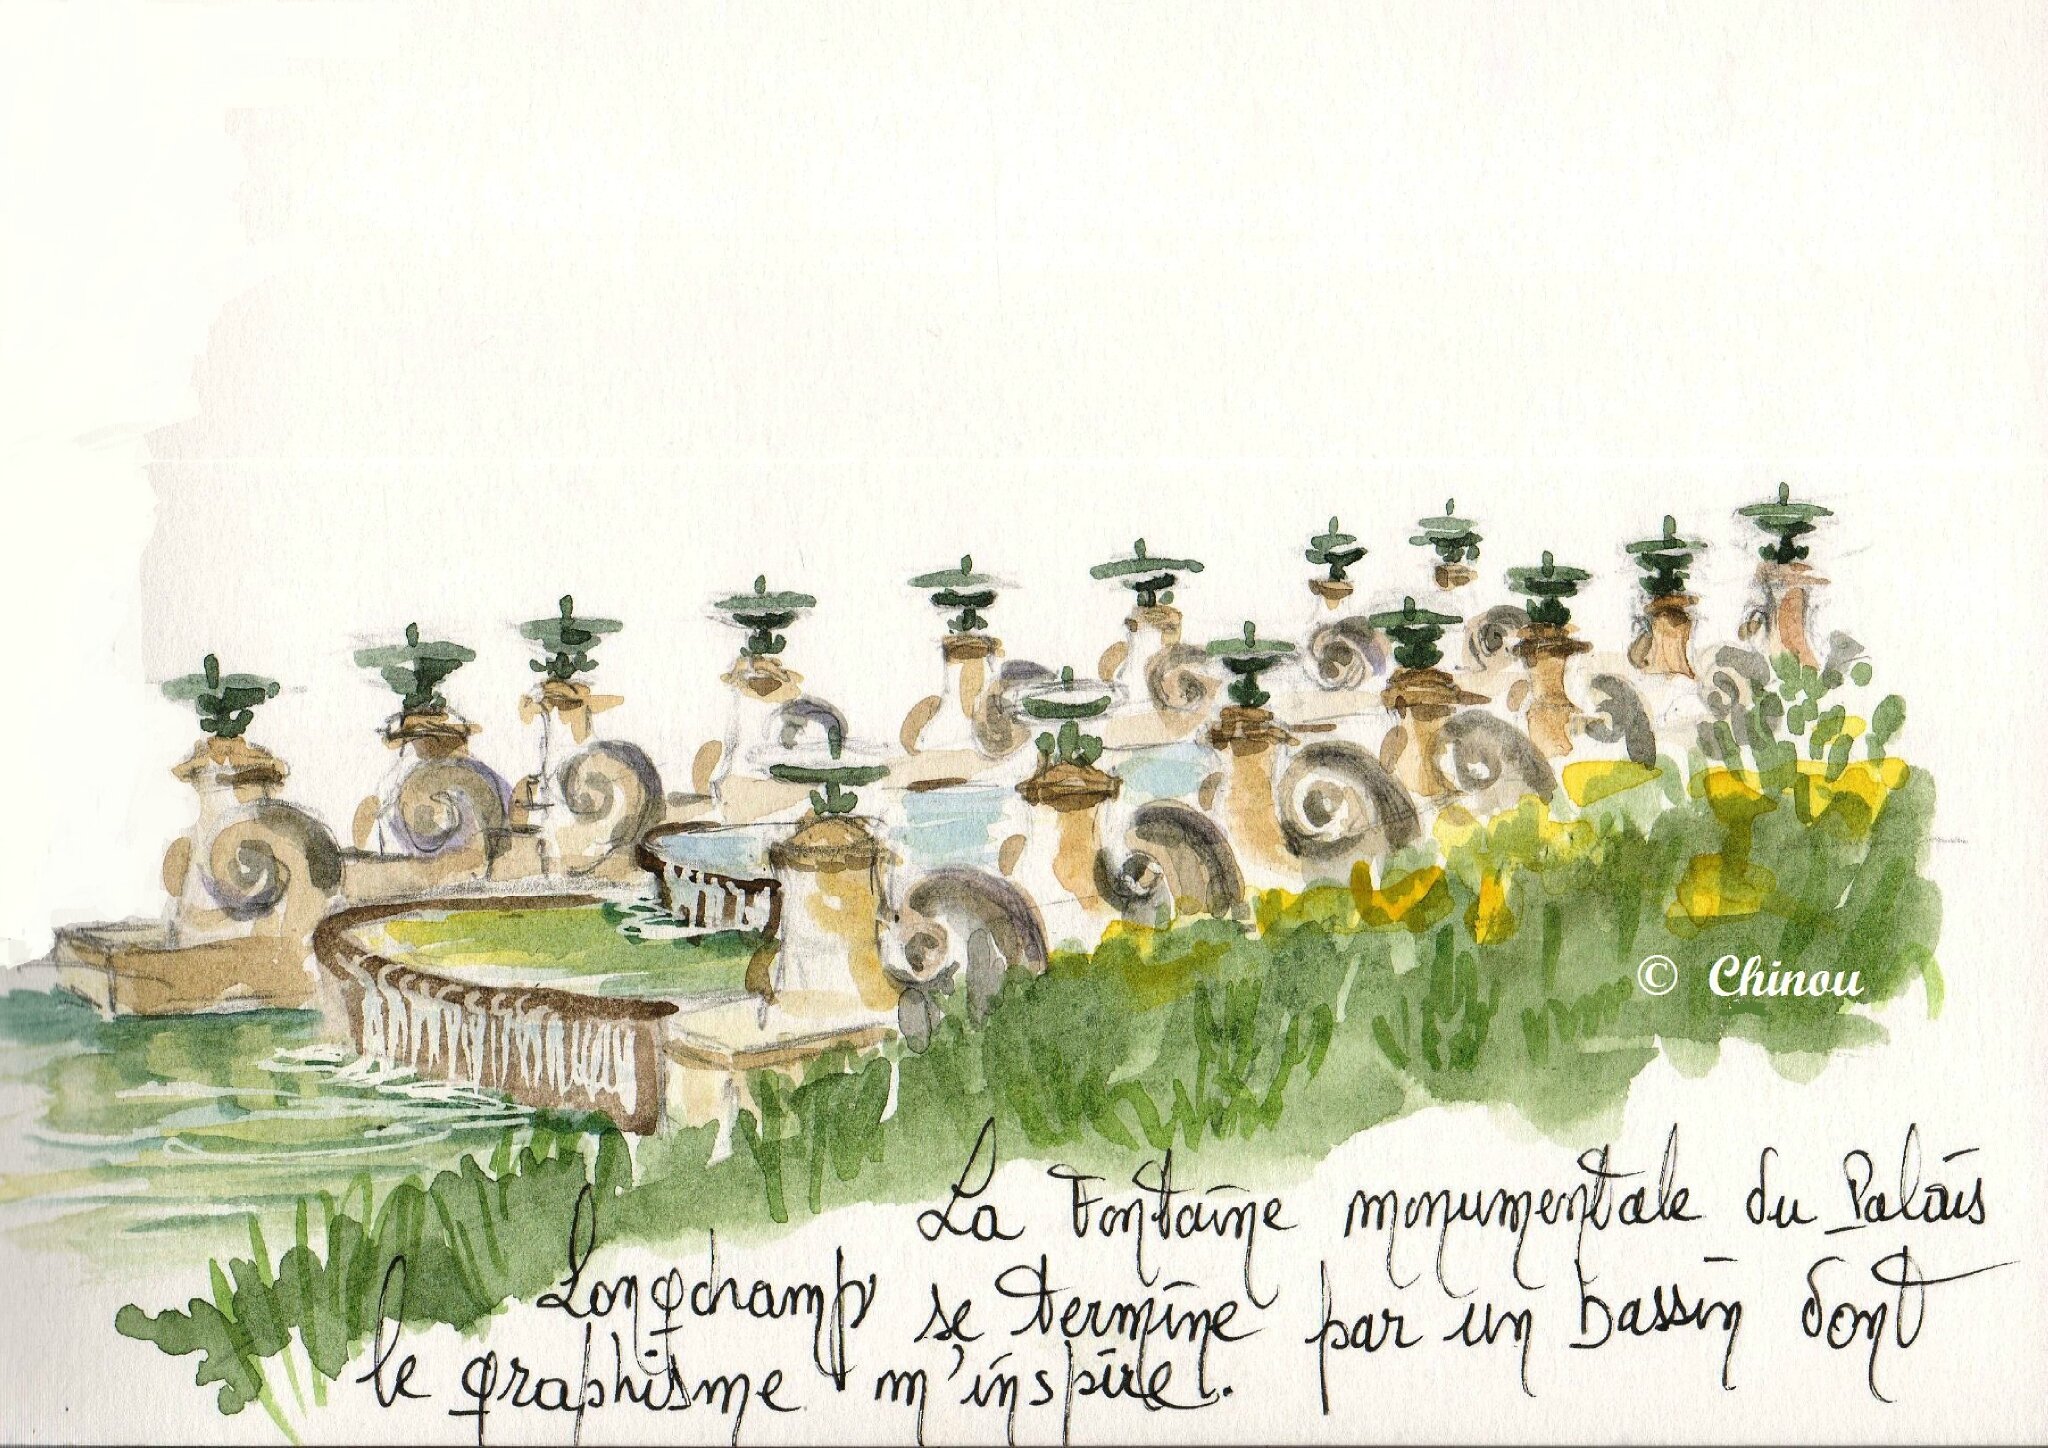 © Chinou
La Fontaine monumentale du Palais
Longchamp se termine par un bassin dont
le graphisme m'inspire.